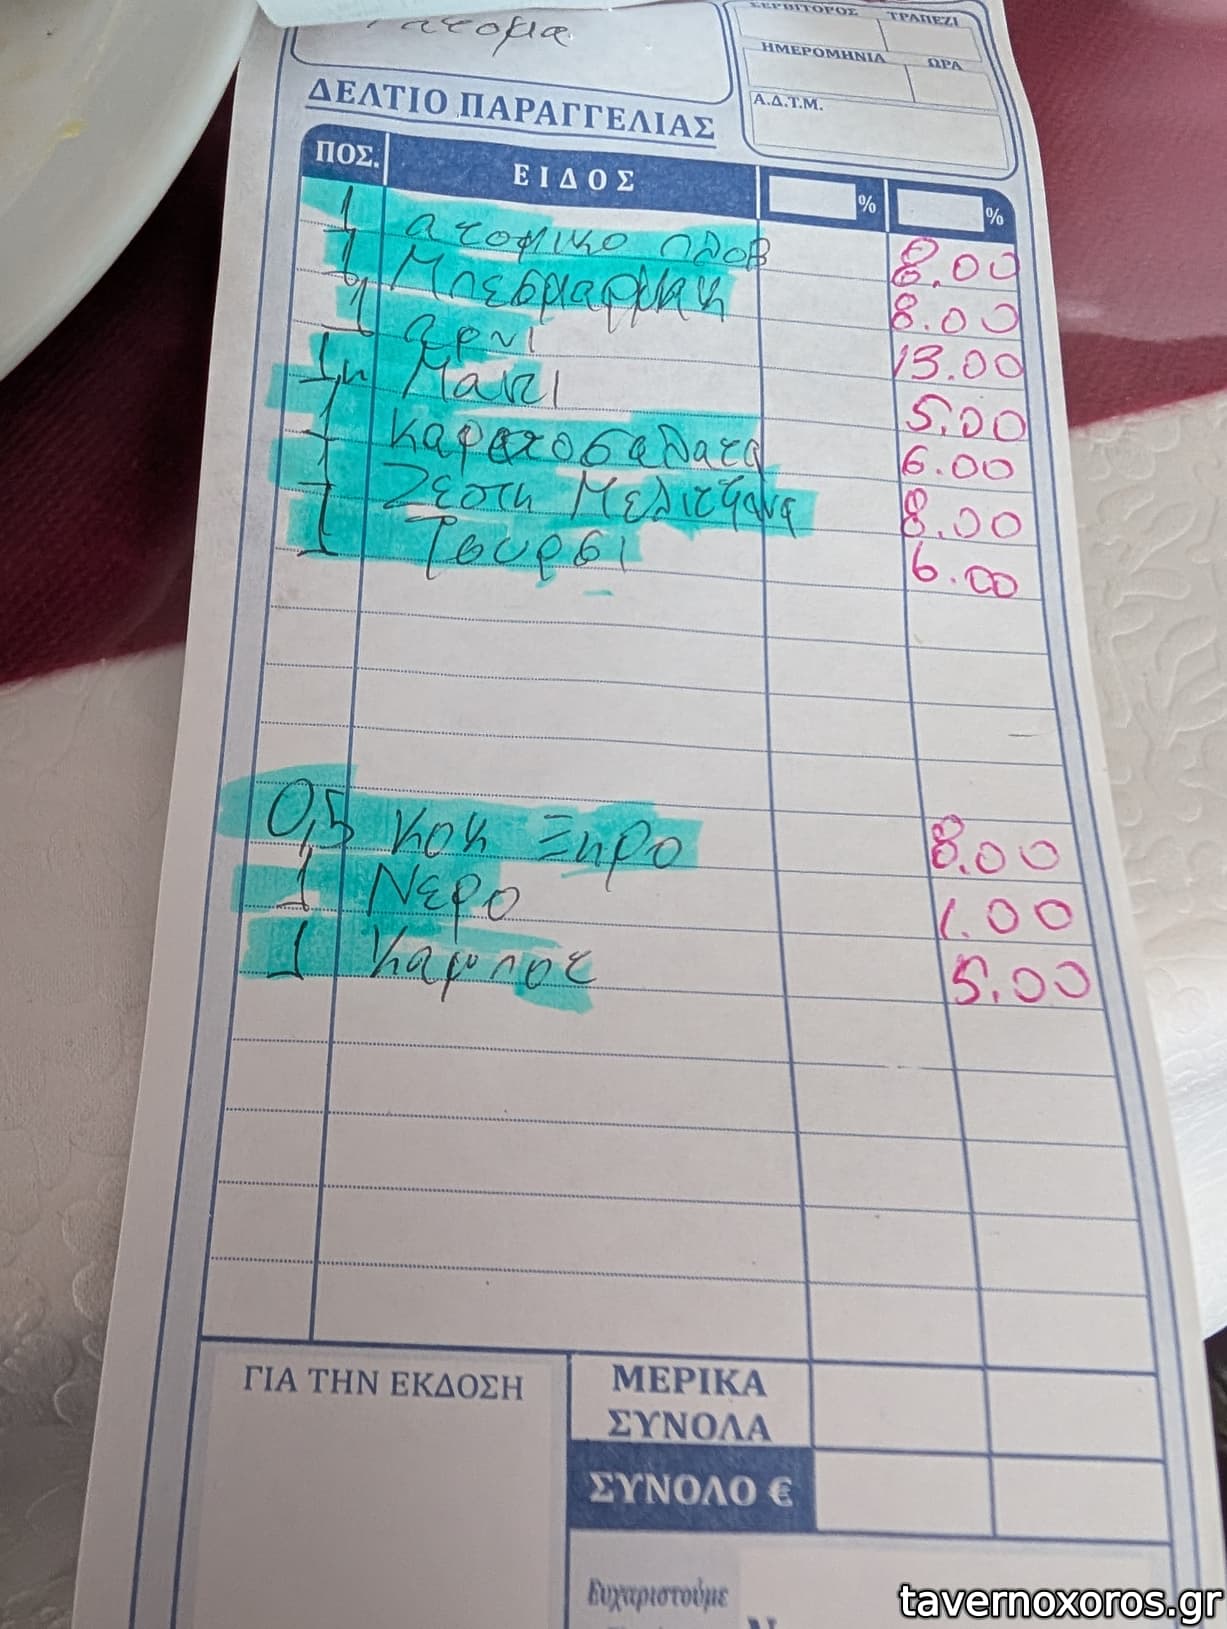 άτομα
ΣΕΡΒΙΤΟΡΟΣ ΤΡΑΠΕΖΙ
ΗΜΕΡΟΜΗΝΙΑ ΩΡΑ
Α.Δ.Τ.Μ.
ΔΕΛΤΙΟ ΠΑΡΑΓΓΕΛΙΑΣ
ΠΟΣ. ΕΙΔΟΣ % %
1 ατομικο 8.00
1 8.00
1 αρνί 13.00
5.00
1 καροτοσαλατα 6.00
1 Ζεστη Μελιτζάνα 8.00
1 Τουρσι 6.00
0,5 κοκ Ξηρο 8.00
1 Νερο 1.00
1 5.00
ΓΙΑ ΤΗΝ ΕΚΔΟΣΗ
ΜΕΡΙΚΑ ΣΥΝΟΛΑ
ΣΥΝΟΛΟ €
Ευχαριστούμε
tavernoxoros.gr